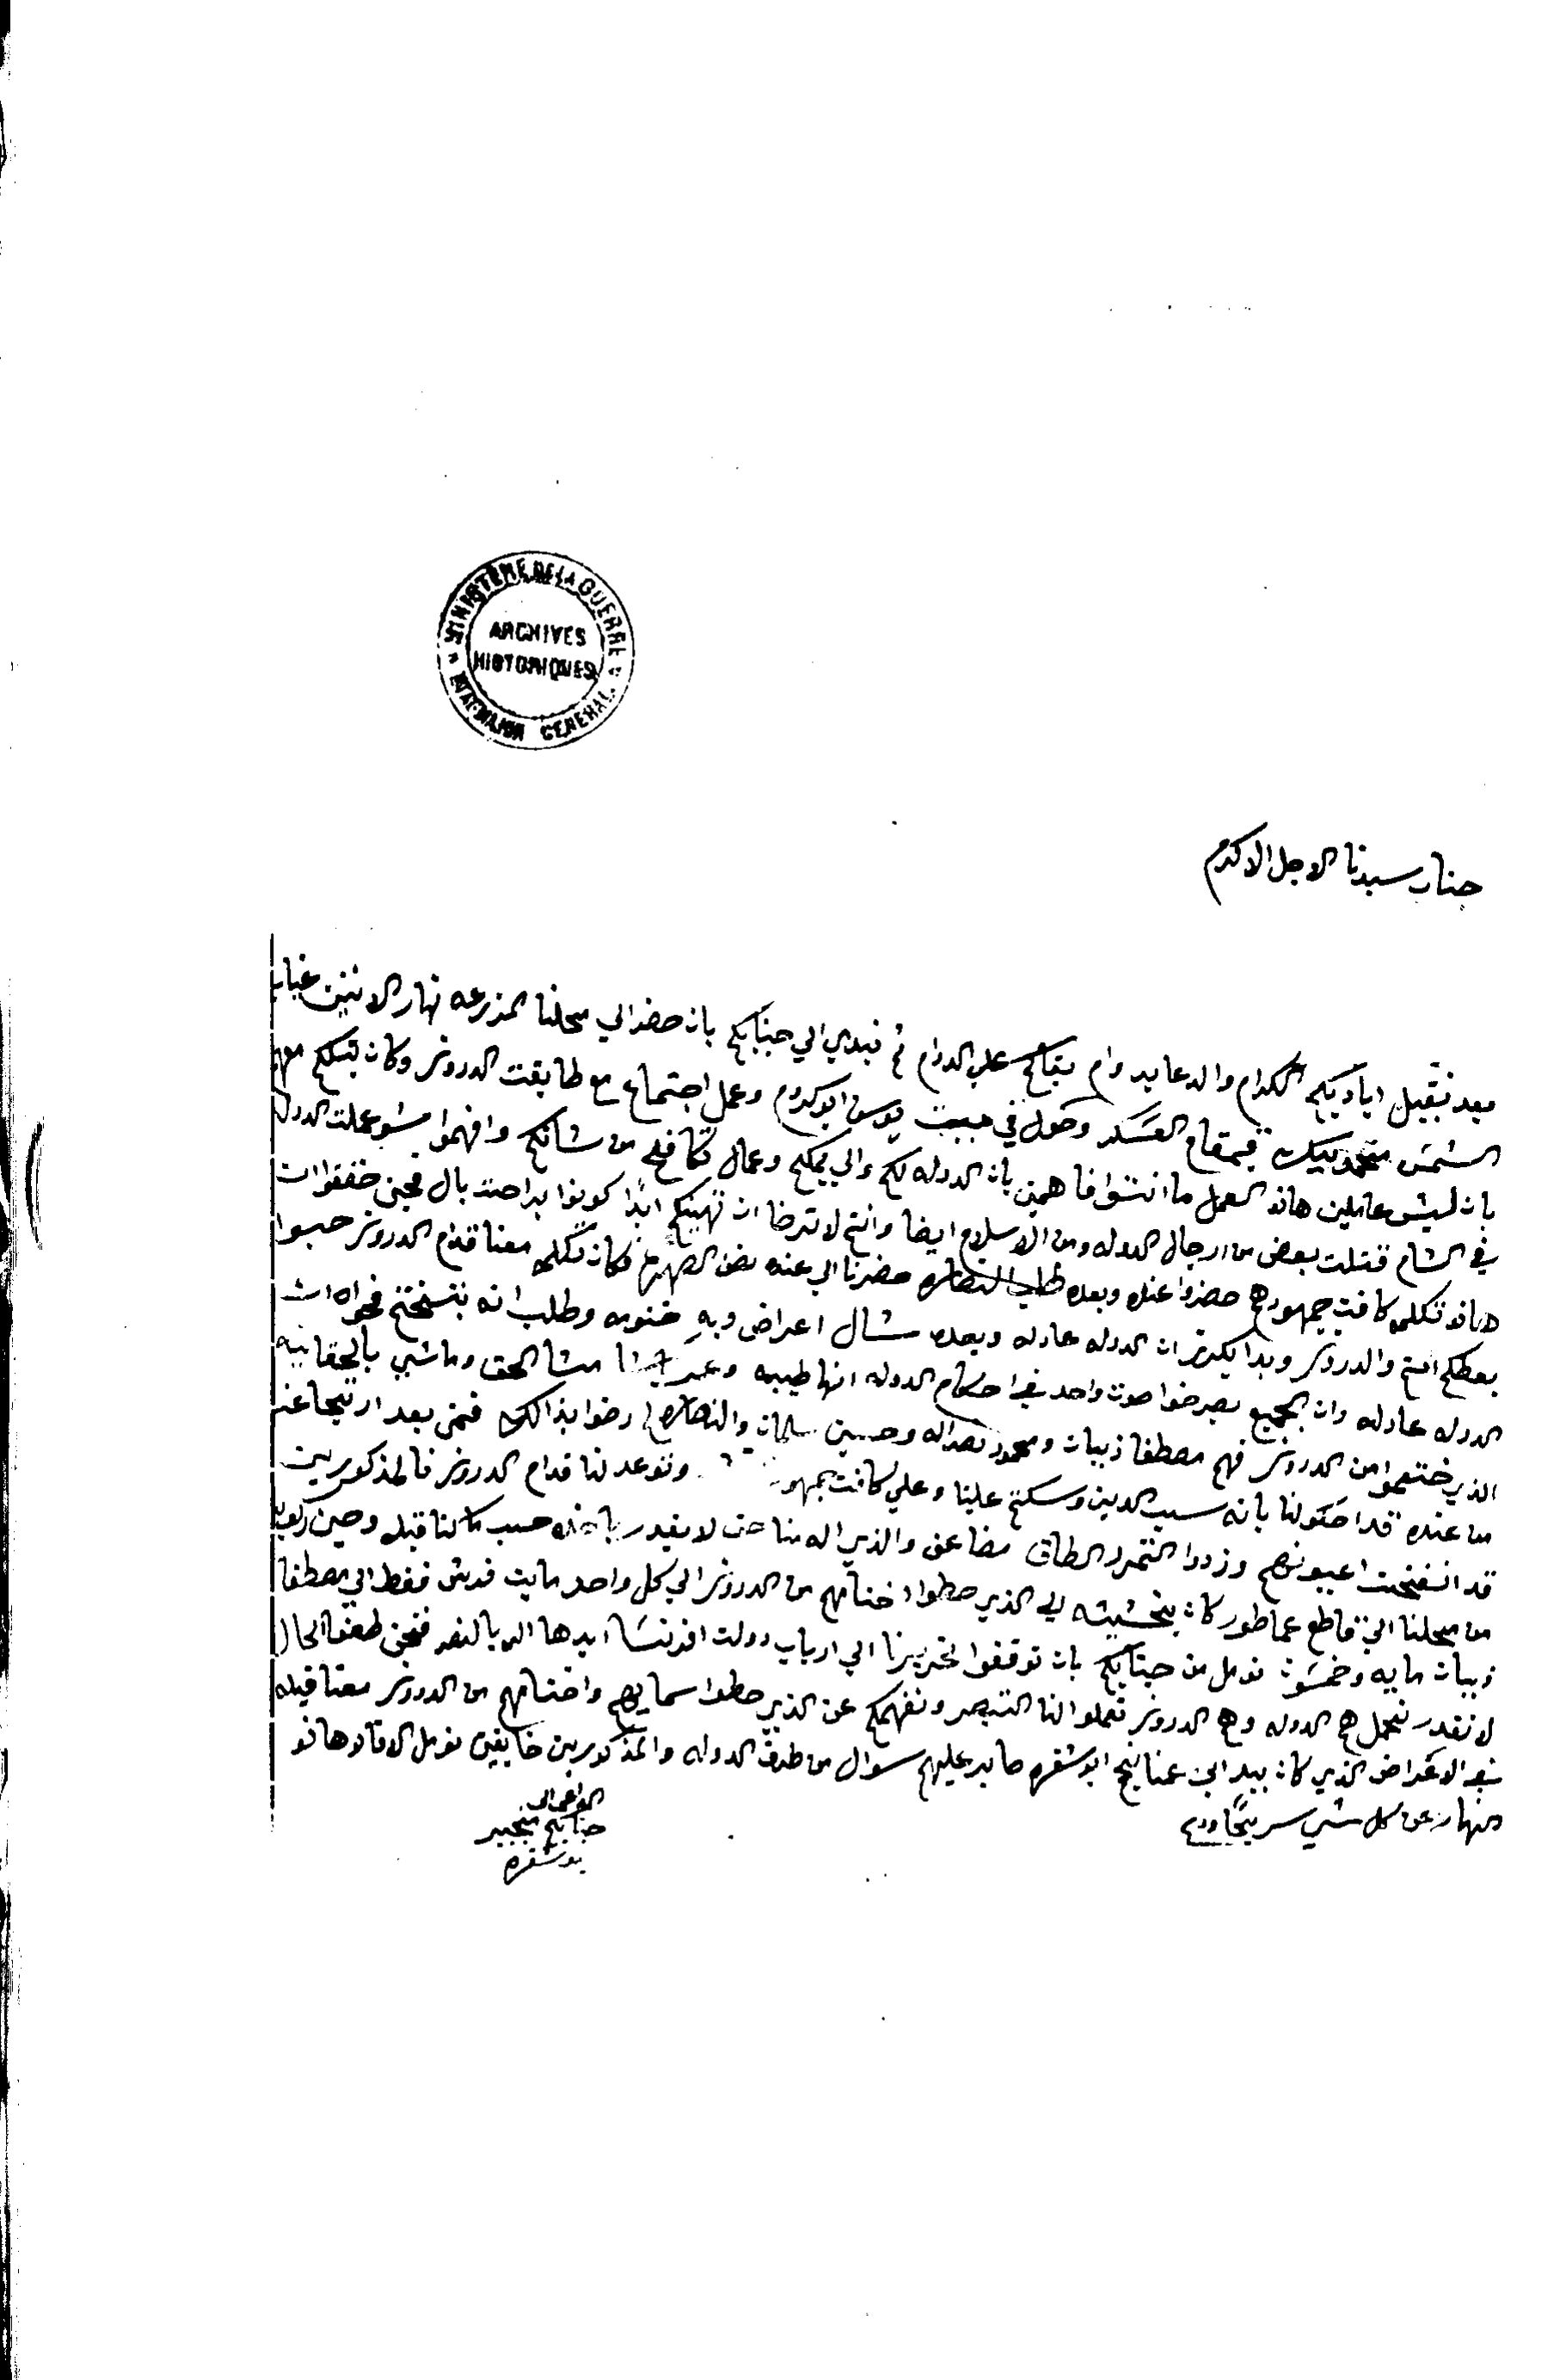 MINISTÈRE DE LA GUERRE
ARCHIVES
HISTORIQUES
ETAT-MAJOR GENERAL
جناب سيدنا الاجل الاكرم
بعد تقبيل اياديكم الكرام والدعا بدوام بقاكم على الدوام ثم نبدي الي جنابكم بان حضر الي محلنا المزرعه نهار الاثنين غياب
الشمس محمد بيك قيمقام العسكر وحول في بيت يوسف ابو كروم وعمل اجتماع مع طايفت الدروز وكان يتكلم معهم
بان ليش عاملين هاذه العمل ما انتوا فاهمين بان الدوله لكم والي يمكم وعمال تكافح من شانكم وافهموا شو عملت الدوله
في الشام قتلت بعض من ارجال الدوله ومن الاسلام ايضا وانتم لا ترضا ان تهينكم ابدًا كونوا براحت بال فحين حققوا ان
هاذه تكلم كافت جمهورهم حضروا عنده وبعده طلب النصاره حضرنا الي عنده فكان تكلم معنا قدام الدروز حبوا
بعضكم انتم والدروز وبدا يكرز ان الدوله عادله وبعده شال اعراض وبه ختومه وطلب انه نختم فحواه ان
الدوله عادله وان الجميع يصرخوا صوت واحد في احكام الدوله انها طيبه الحق وماشي بالحقانيه
الذي ختموا من الدروز فهم مصطفا ذبيان ومحمود نصرالله وحسين سلمان والنصاره لم رضوا بذالك فمن بعد ارتجاعنا
من عنده قد احكولنا بانه سبب الدين وسكتم علينا وعلي كافت جمهور وتوعد لنا قدام الدروز فالمذكورين
قد انفتحت اعيونهم وزدوا التمرد الطاق مضاعف والذي اله منا حق لا يقدر ياخذه حسب ما كنا قبله وحين ركوبه
من محلنا الي قاطع عماطور كان بخشيشه لي الذي حطوا اختامهم من الدروز الي كل واحد مايت قرش فقط الي مصطفا
ذبيان مايه وخمسون نومل من جنابكم بان توقفوا تحريرنا الي ارباب دولت افرنسا ايدها الله بالنصر فنحن طعنا الحال
لا نقدر نحمل هم الدوله وهم الدروز تعملوا لنا التبصر ونفهمكم عن الذي حطوا اسمايهم واختامهم من الدروز معنا قبله
في الاعراض الذي كان بيد ابن عنا بو شقره صاير عليهم سوال من طرف الدوله والمذكورين خايفين نومل الافاده هاذه
النهار عن كل شي سريعًا ودم
الداعي الي
جنابكم
بو شقره